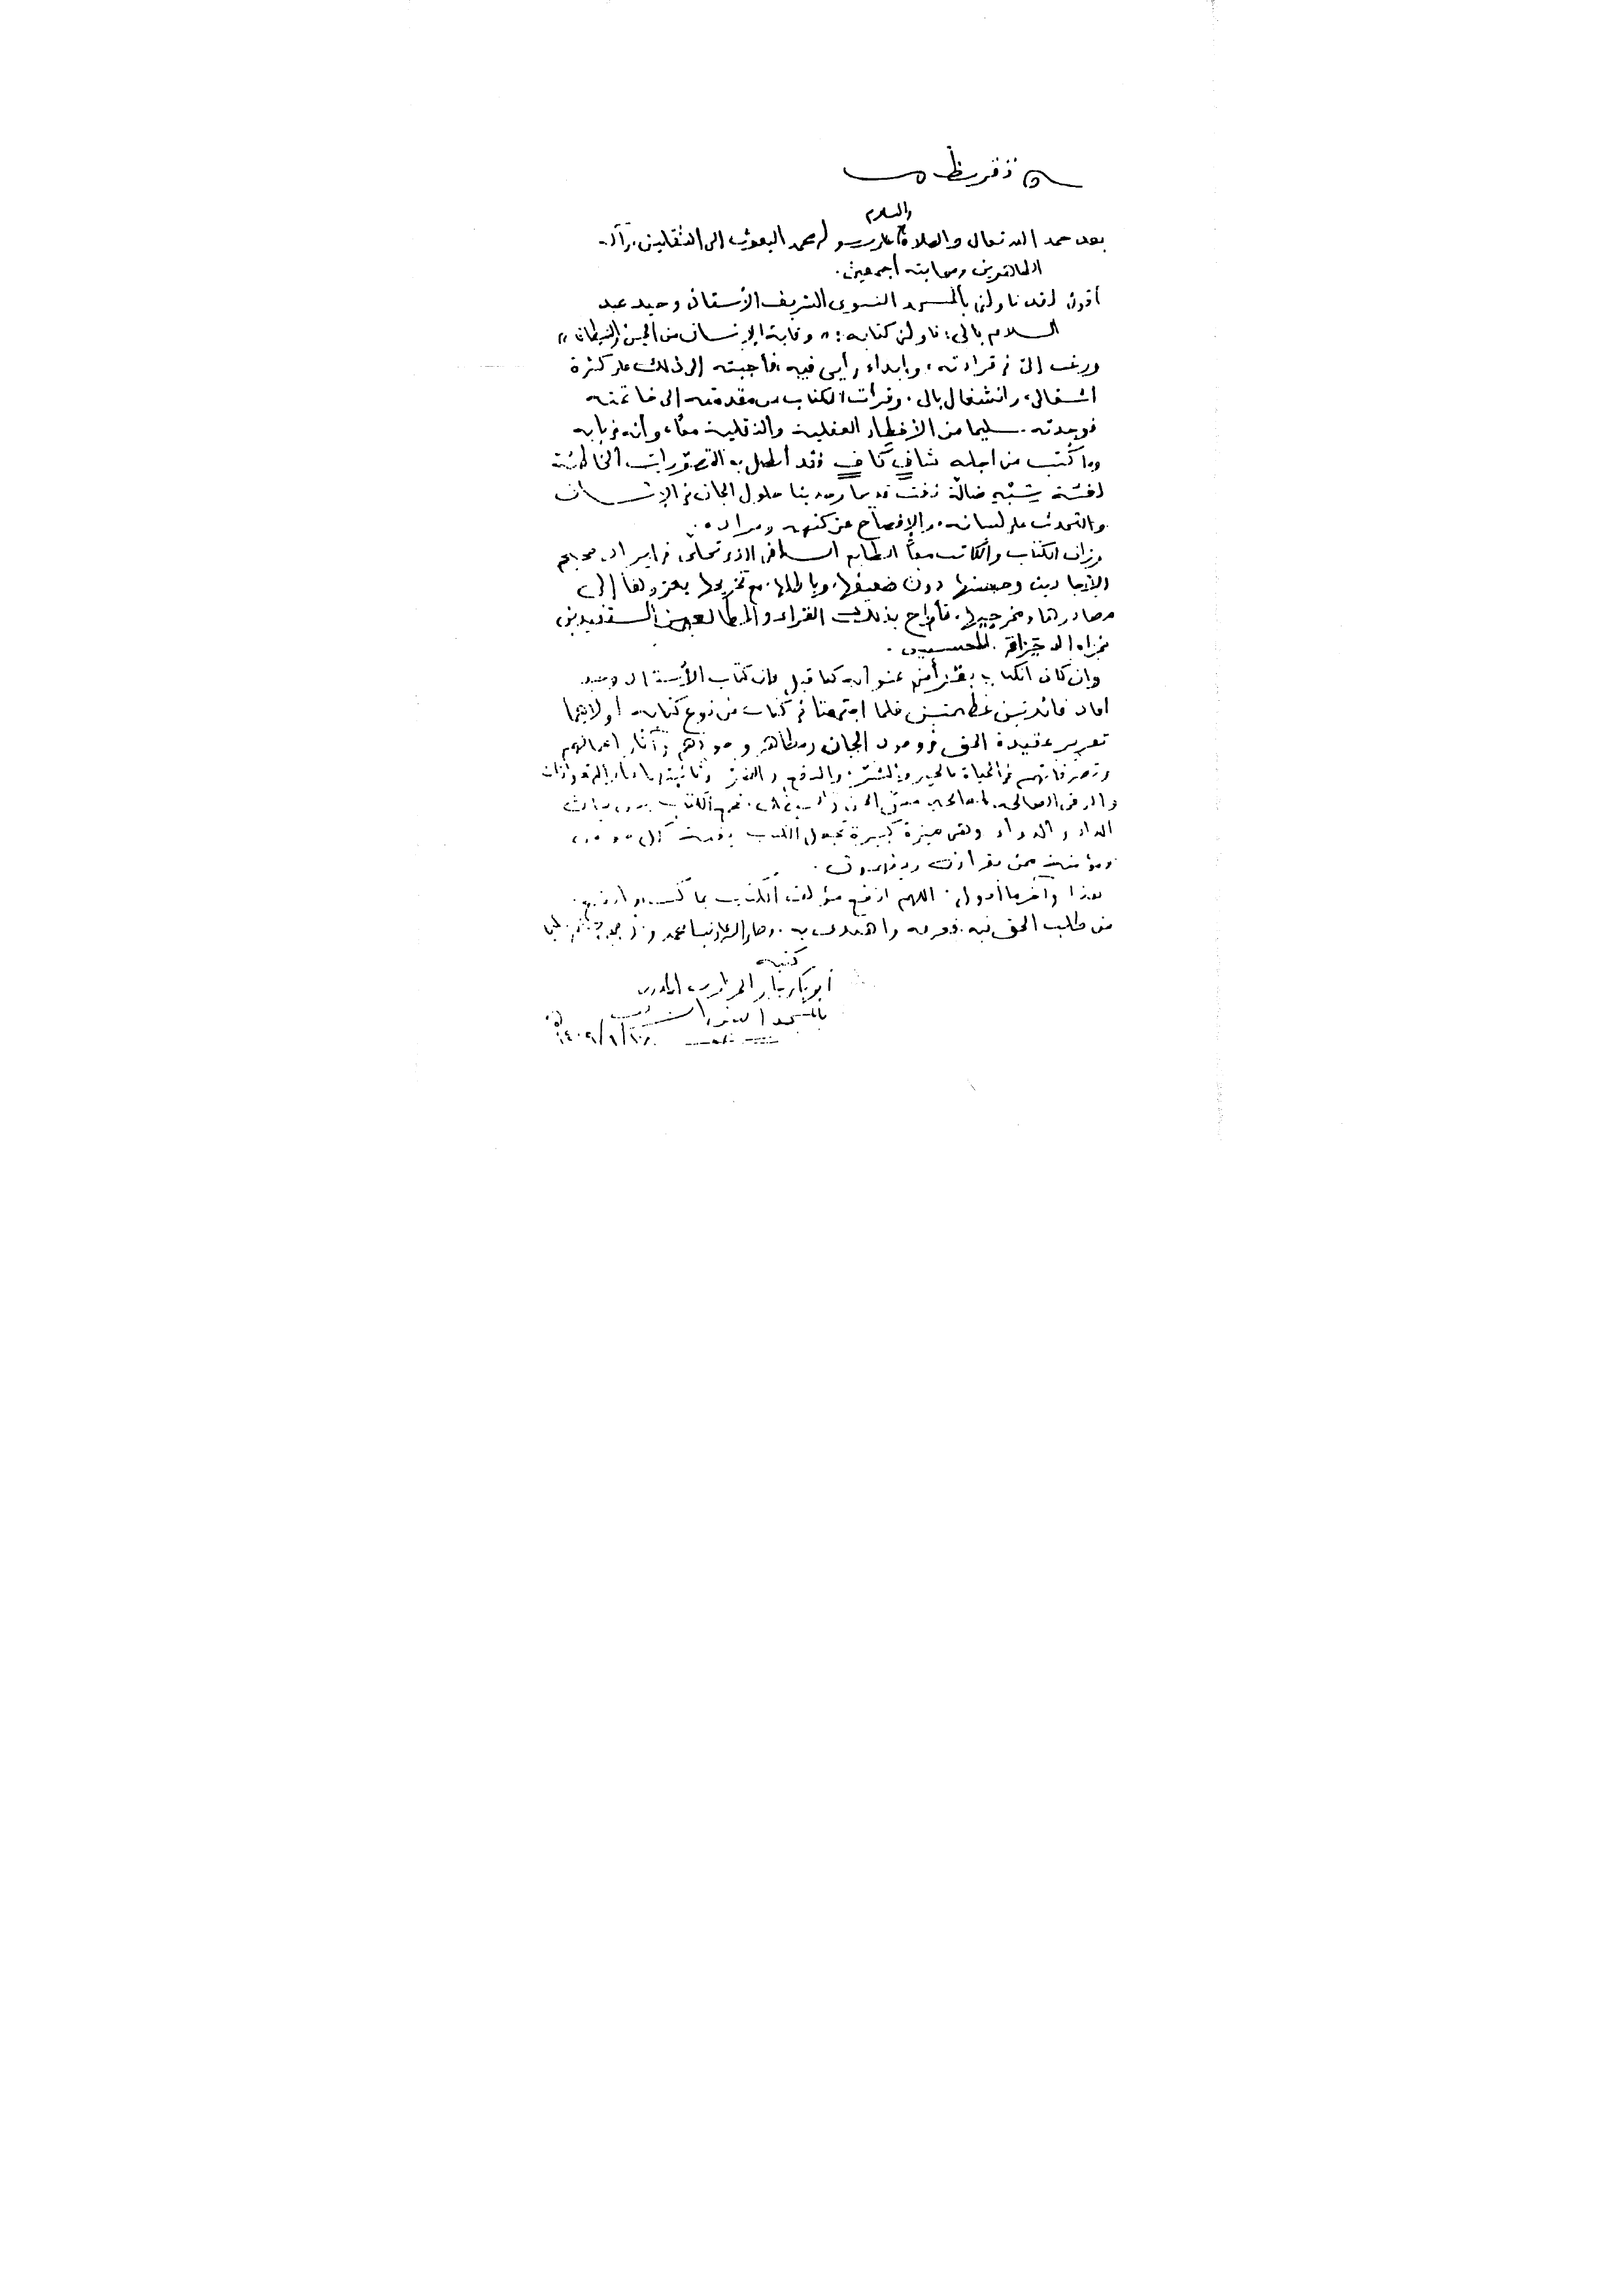 تقريظ
والسلام
بعد حمد الله تعالى والصلاة على رسوله محمد المبعوث إلى الثقلين، وآله
الطاهرين وصحابته أجمعين.
أقول لقد ناولني بالمسجد النبوي الشريف الأستاذ وحيد عبد
السلام بالي: ناولني كتابه: "وقاية الإنسان من الجن والشيطان"
ورغب إلي في قراءته، وإبداء رأيي فيه، فأجبته إلى ذلك على كثرة
اشغالي، وانشغال بالي. وقرأت الكتاب من مقدمته إلى خاتمته
فوجدته سليما من الأخطاء العقلية والنقلية معًا، وأنه في بابه
وما كُتب من أجله شافٍ كافٍ فقد أبطل به التصورات الخاطئة
لفئة ضالة نفت قديما وحديثا حلول الجان في الإنسان
والتحدث على لسانه، والإفصاح عن كنهه ومراده.
وزان الكتاب والكاتب معًا الطابع السلفي الذي تجلى في إيراد صحيح
الأحاديث وحسنها دون ضعيفها، وباطلها. مع تخريجها بعزوها إلى
مصادرها ومخرجيها، فأراح بذلك القراء والمطالعين المستفيدين
فجزاه الله جزاء المحسنين.
وإن كان الكتاب يقرأ من عنوانه كما قيل فإن كتاب الأستاذ وحيد
أفاد فائدتين عظيمتين قلما اجتمعتا في كتاب من نوع كتابه أولاهما
تقرير عقيدة الحق في وجود الجان وآثار أعمالهم
وتصرفاتهم في الحياة بالخير والشر، والدفع والضر وثانيتهما
والرقى
الداء والدواء وهي ميزة كبيرة تجعل الكتاب
ممن يقرأون ويفهمون.
هذا وآخر ما أقول: اللهم انفع مؤلف الكتاب بما كتب وانفع به
من طلب الحق فيه، فعرفه واهتدى به. وصل اللهم على نبينا محمد وآله وصحبه
كتبه
أبو بكر جابر الجزائري المدرس
بالمسجد النبوي الشريف